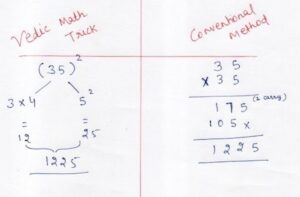 Vedic Math
Trick
(35)²
3 x 4 5²
= =
12 25
1225
Conventional
Method
35
x 35
175 (2 carry)
105 x
1225